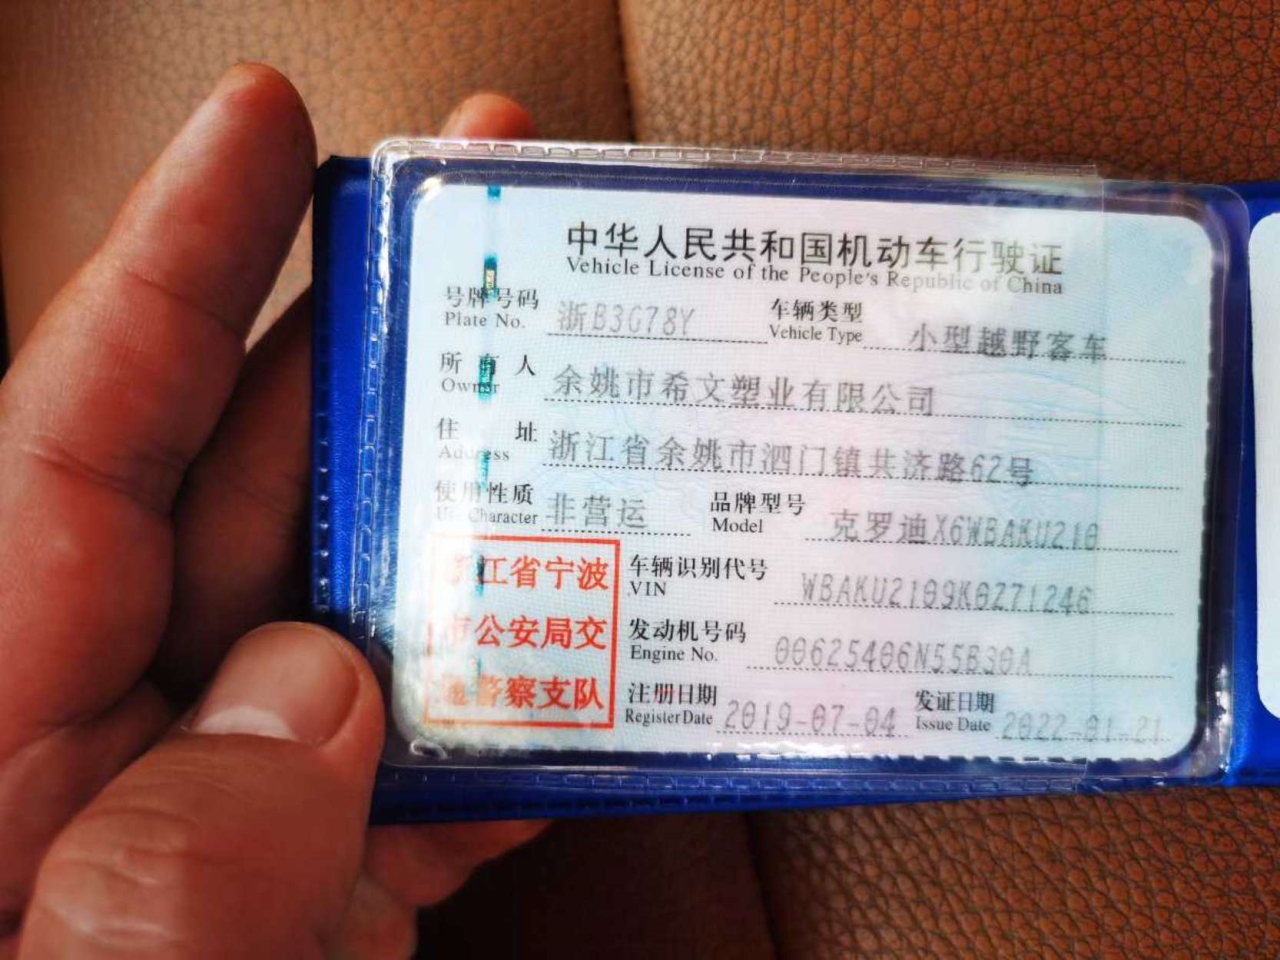 中华人民共和国机动车行驶证
Vehicle License of the People's Republic of China
号牌号码 浙B3G78Y 车辆类型 小型越野客车
Plate No. Vehicle Type
所有人 余姚市希文塑业有限公司
Owner
住址 浙江省余姚市泗门镇共济路62号
Address
使用性质 非营运 品牌型号 克罗迪X6WBAKU210
Use Character Model
浙江省宁波
市公安局交
通警察支队
车辆识别代号 WBAKU2109K0Z71246
VIN
发动机号码 00625406N55B30A
Engine No.
注册日期 2019-07-04 发证日期 2022-01-21
Register Date Issue Date